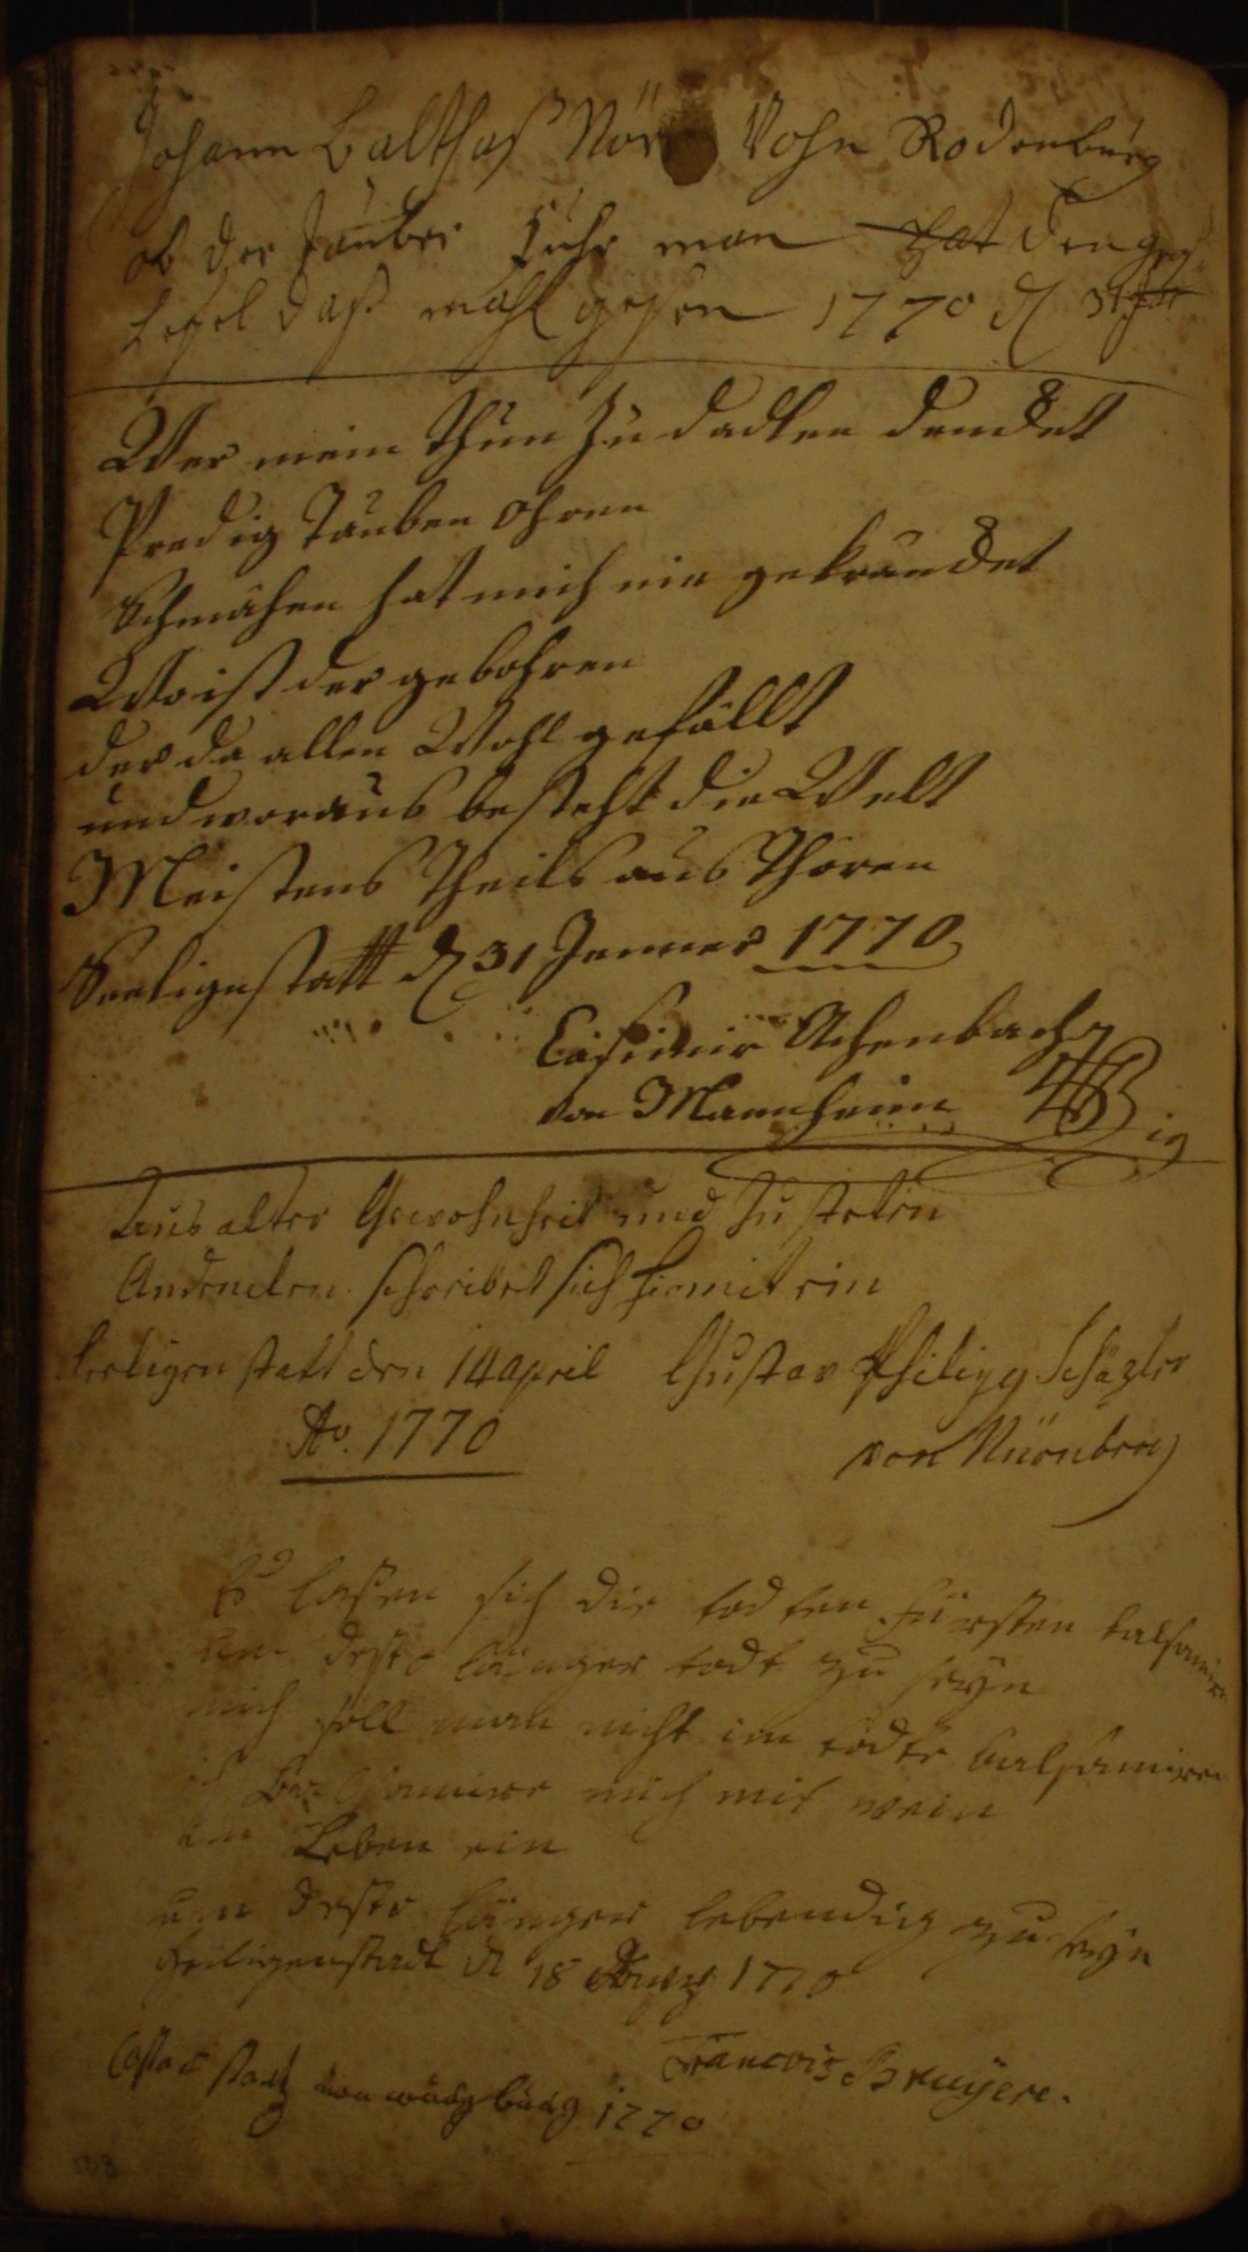 Johann Balthaß Nör Vohn Rodenburg
ob der Tauber Fuhr man hat den
Lefel daß mahl geßen 1770 d 31
Wer mein Thun zu dadlen dencket
Predig Tauben ohren
Schmähen hat mich nie gekräncket
Wo ist der gebohren
der da allen Wohl gefällt
und woraus besteht die Welt
Meistens Theils aus Thoren
Seeligenstatt d 31 Jenner 1770
Casimir Achenbach
von Mannheim
Aus alter Gewohnheit und zu steten
Andencken schreibet sich hiermit ein
Seeligenstatt den 14 April Gustav Philipp Schäzler
Ao. 1770 von Nürnberg
Es laßen sich die todten Fürsten balsamiren
um desto länger todt zu seyn
mich soll man nicht im todte balsamiren
ich Balsamire mich mit wein
im Leben ein
um desto länger lebendig zu seyn
Heiligenstadt d 18 1770
Francois Bruyere.
von würzburg 1770